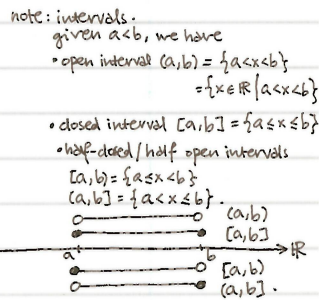 note: intervals.
given a<b, we have
• open interval (a,b) = {a<x<b}
= {x∈ℝ | a<x<b}
• closed interval [a,b] = {a≤x≤b}
• half-closed/half open intervals
[a,b) = {a≤x<b}
(a,b] = {a<x≤b}.
(a,b)
[a,b]
a b ℝ
[a,b)
(a,b].